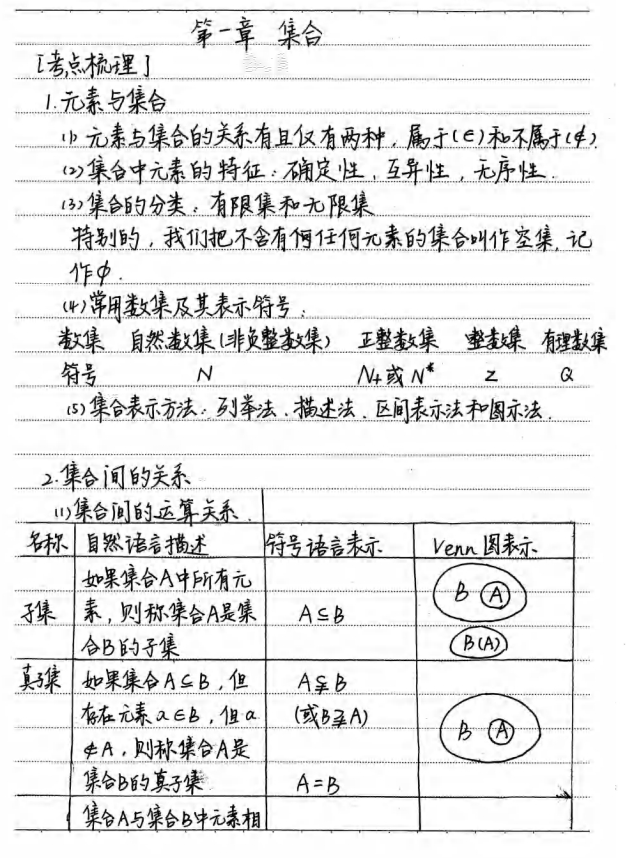 第一章 集合
[考点梳理]
1.元素与集合
(1) 元素与集合的关系有且仅有两种，属于(∈)和不属于(∉)
(2)集合中元素的特征：确定性，互异性，无序性.
(3)集合的分类：有限集和无限集
特别的，我们把不含有何任何元素的集合叫作空集，记
作φ.
(4)常用数集及其表示符号：
数集 自然数集(非负整数集) 正整数集 整数集 有理数集
符号 N N+或N* Z Q
(5)集合表示方法：列举法、描述法、区间表示法和图示法.
2.集合间的关系
(1)集合间的运算关系.
名称 自然语言描述 符号语言表示 Venn图表示
如果集合A中所有元
素，则称集合A是集
合B的子集
子集
A⊆B
B A
B(A)
真子集
如果集合A⊆B，但
存在元素a∈B，但a
∉A，则称集合A是
集合B的真子集
A⫋B
(或B⫌A)
B A
A=B
集合A与集合B中元素相